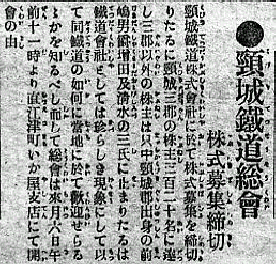 ●頸城鐵道總會
株式募集締切
頸城鐵道株式會社に於て株式募集を締切
りたるに頸城三郡の株主三百二十名に達
し三郡以外の株主は只中頸城郡出身の前
島男爵增田及淸水の三氏に止まりたるは
鐵道會社としては珍らしき現象にして以
て同鐵道の如何に當地に於て歡迎せらる
ゝかを知るべし而して總會は來月六日午
前十一時より直江津町いか屋支店にて開
會の由